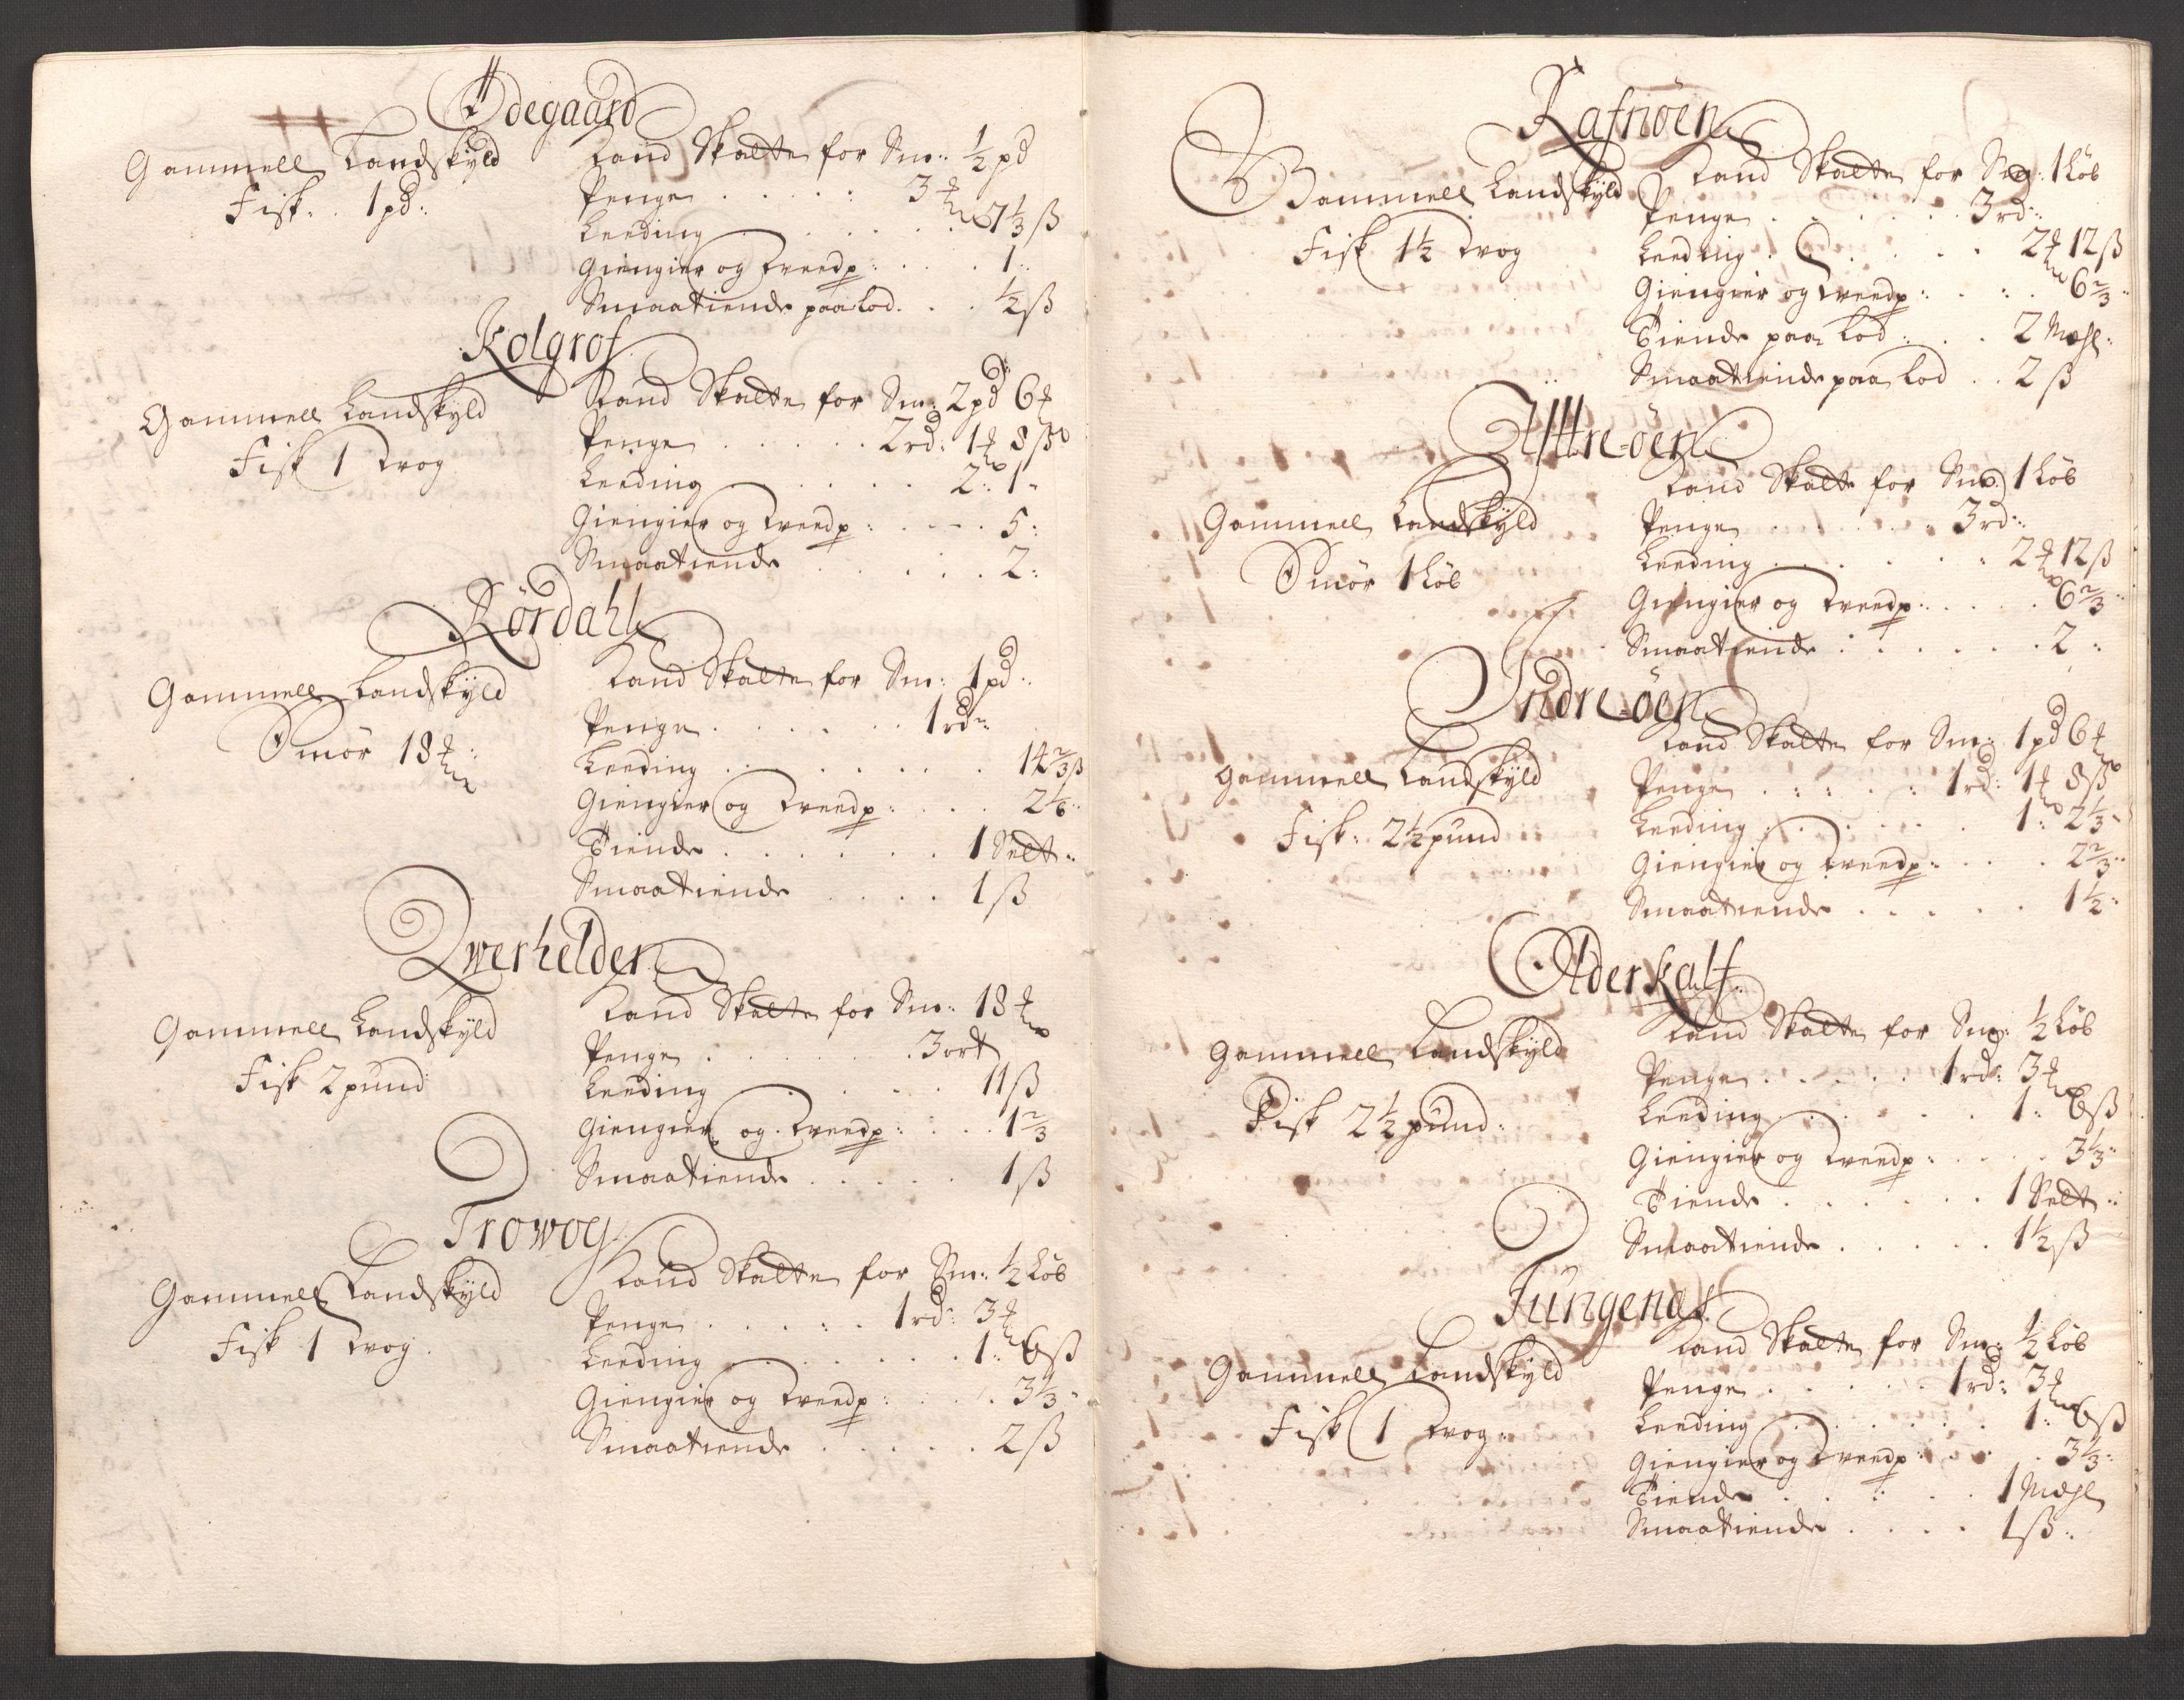 Ødegaard
Gammell Landskyld
Fisk: 1 pd:
Land Skatte for Sm: ½ pd
Penge . . . . 3 ℔
Leeding . . . . 7⅓ ß
Giengier og Treedp: . . . 1:
Smaatiende paa Lod. . . ½ ß
Kolgrof
Gammell Landskyld
Fisk 1 Wog
Land Skatte for Sm: 2 pd 6 ℔
Penge . . . . 2 rd: 1 ℔ 8 ß
Leeding . . . . 2: 1:
Giengier og Treedp: . . . 5:
Smaatiende . . . . 2:
Rördahl
Gammell Landskyld
Smör 18 ℔:
Land Skatte for Sm: 1 pd:
Penge . . . . 1 rd:
Leeding . . . . 14⅔ ß
Giengier og Treedp: . . . 2⅙:
Tiende . . . . 1 Selt:
Smaatiende . . . . 1 ß
Qwerhelder
Gammell Landskyld
Fisk 2 pund
Land Skatte for Sm: 18 ℔
Penge . . . . 3 ort
Leeding . . . . 11 ß
Giengier og Treedp: . . . 1⅔
Smaatiende . . . . 1 ß
Trowog
Gammell Landskyld
Fisk 1 Wog.
Land Skatte for Sm: ½ Löb
Penge . . . . 1 rd: 3 ℔
Leeding . . . . 1: 6 ß
Giengier og Treedp: . . . 3⅓:
Smaatiende . . . . 2 ß
Rafnöen
Gammell Landskyld
Fisk 1½ Wog
Land Skatte for Sm: 1 Löb
Penge . . . . 3 rd:
Leeding . . . . 2 ℔ 12 ß
Giengier og Treedp: . . . 6⅔:
Tiende paa Lod: . . . 2 Mæhl:
Smaatiende paa Lod . . 2 ß
Ÿttre-öen
Gammell Landskyld
Smör 1 Löb
Land Skatte for Sm: 1 Löb
Penge . . . . 3 rd:
Leeding . . . . 2 ℔ 12 ß
Giengier og Treedp: . . . 6⅔:
Smaatiende . . . . 2:
Indre-öen
Gammell Landskyld
Fisk: 2½ pund
Land Skatte for Sm: 1 pd 6 ℔
Penge . . . . 1 rd: 1 ℔ 8 ß
Leeding . . . . 1: 2⅓:
Giengier og Treedp: . . . 2⅔:
Smaatiende . . . . 1½:
Alderkalf
Gammell Landskyld
Fisk 2½ pund:
Land Skatte for Sm: ½ Löb
Penge . . . . 1 rd: 3 ℔
Leeding . . . . 1: 6 ß
Giengier og Treedp: . . . 3⅓:
Tiende . . . . 1 Selt:
Smaatiende . . . . 1½ ß
Tungenes
Gammell Landskyld
Fisk 1 Wog:
Land Skatte for Sm: ½ Löb
Penge . . . . 1 rd: 3 ℔
Leeding . . . . 1: 6 ß
Giengier og Treedp: . . . 3⅓:
Tiende . . . . 1 Mæhl
Smaatiende . . . . 1 ß: